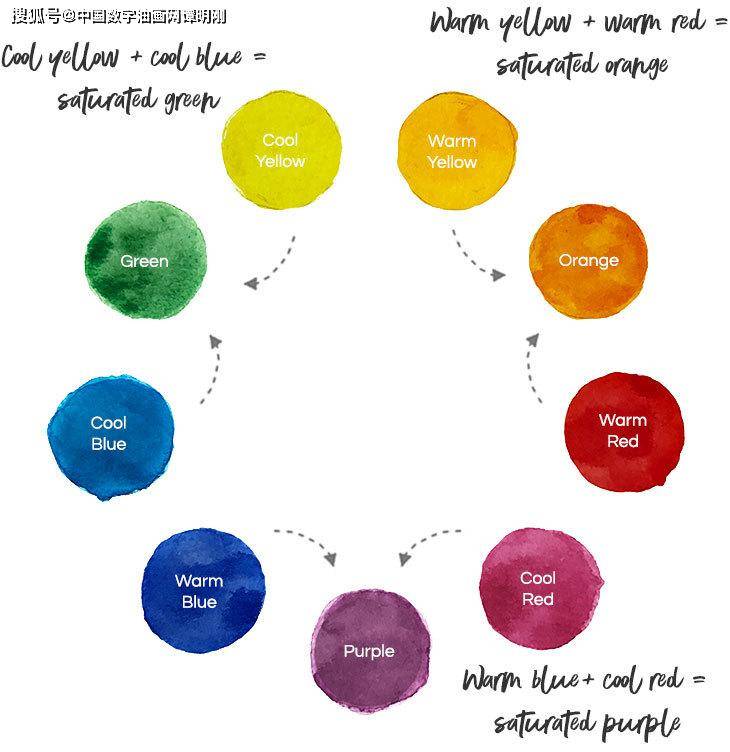 搜狐号@中国数字油画网谭明刚
Cool yellow + cool blue =
saturated green
Warm yellow + warm red =
saturated orange
Cool
Yellow
Warm
Yellow
Green
Orange
Cool
Blue
Warm
Red
Warm
Blue
Cool
Red
Purple
Warm blue + cool red =
saturated purple